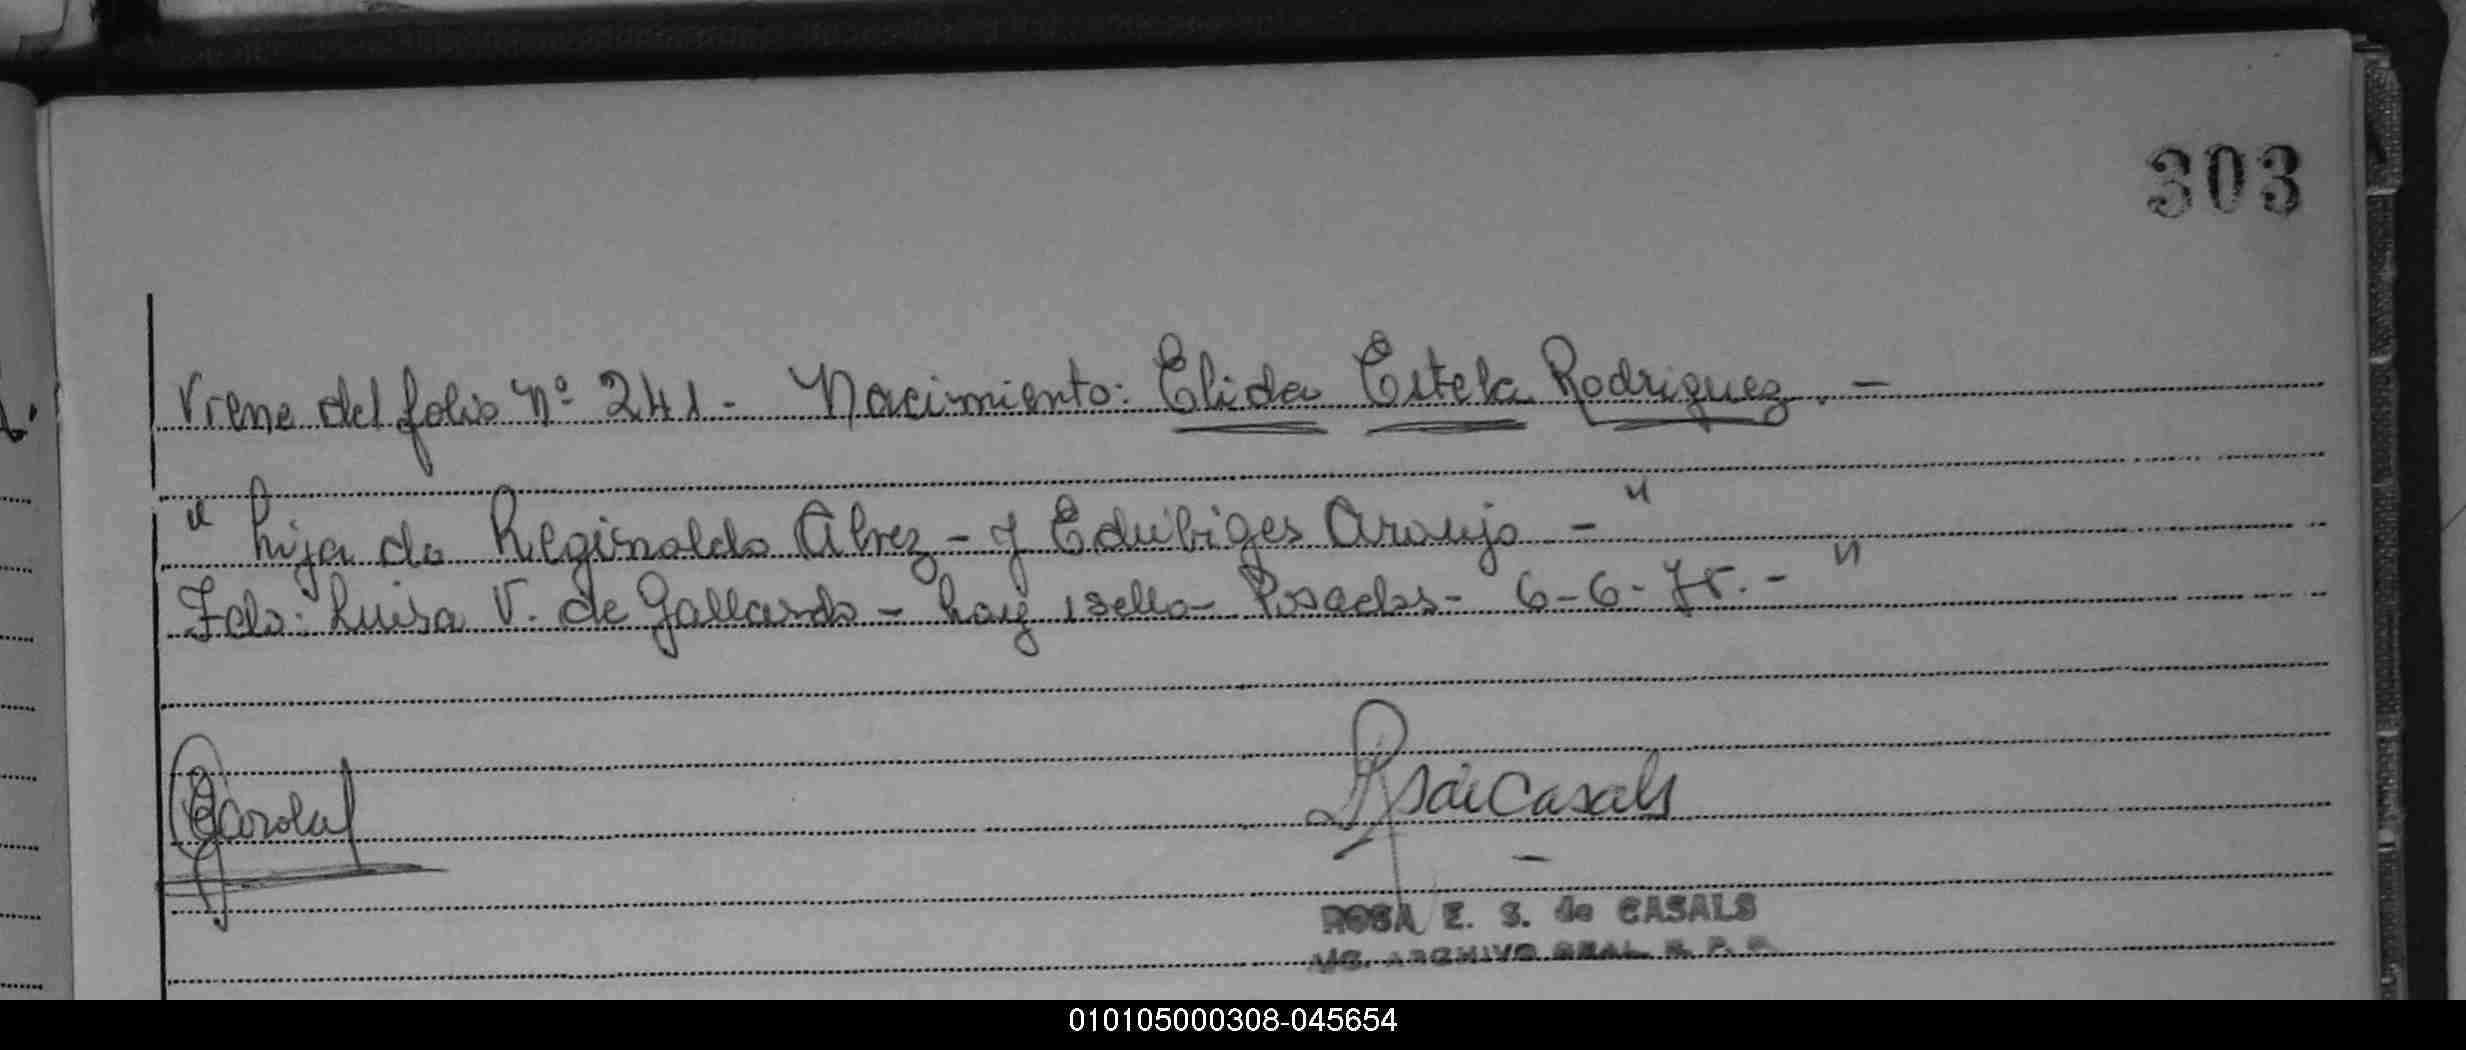 303
Viene del folio Nº 241. - Nacimiento: Elida Estela Rodriguez. -
" hija de Reginaldo Alvez - y Edubiges Araujo - "
Fdo: Luisa V. de Gallardo - hay 1 sello - Posadas - 6-6-75. - "
de Casals
ROSA E. S. de CASALS
ARCHIVO GRAL. R. P. P.
010105000308-045654